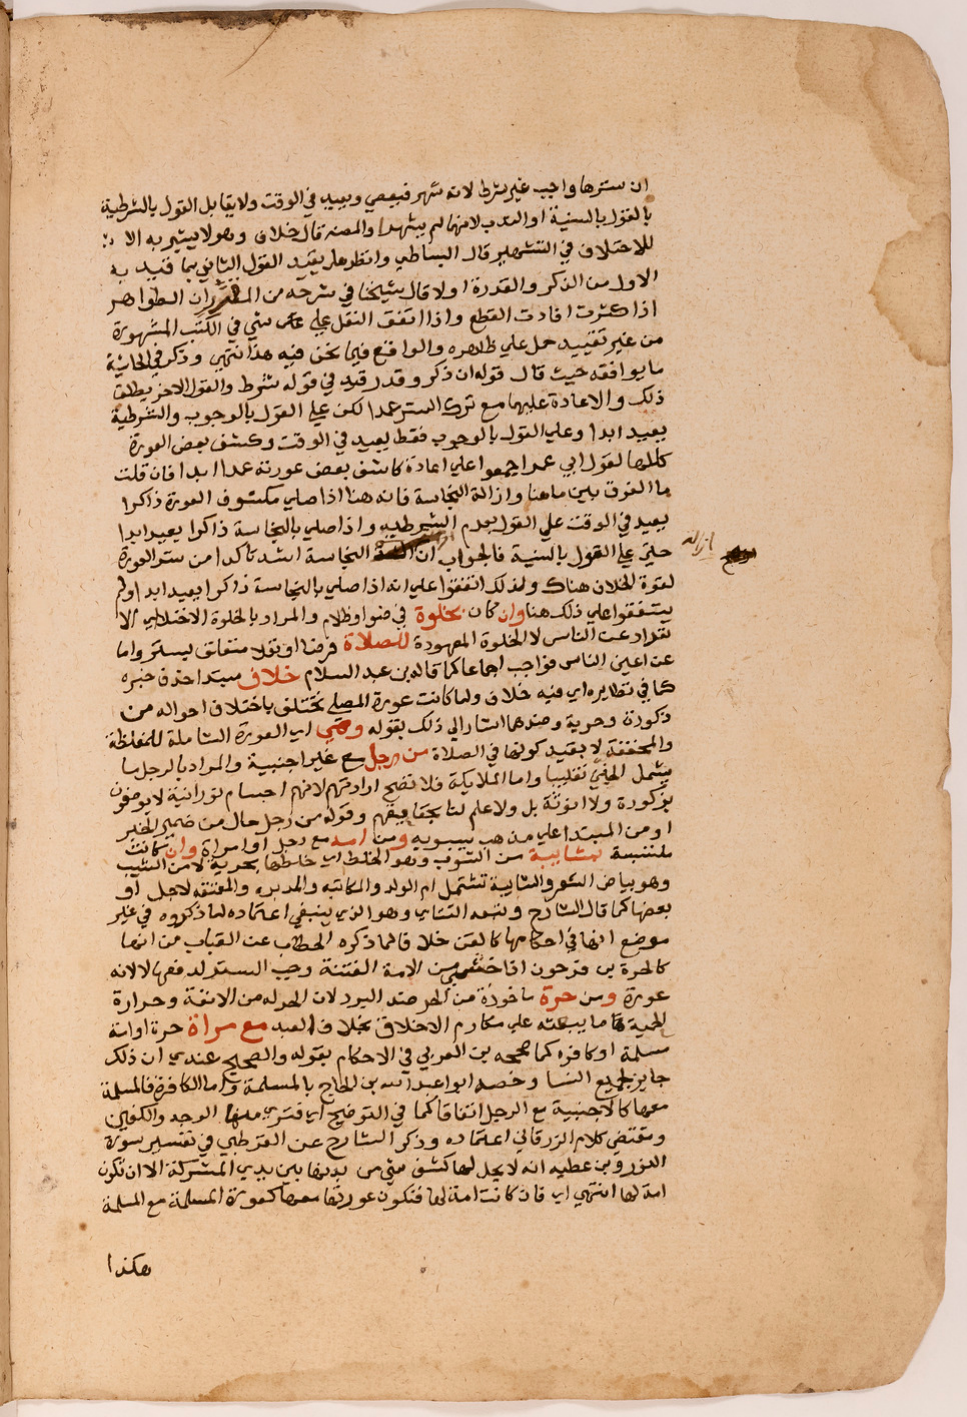 ان سترها واجب غير شرط لانه شهر فيعصي ويعيد في الوقت ولا يقابل القول بالشرطية
بالقول بالسنية او الندب لانهما لم يشهرا والمصنف قال خلاف وهو لا يشير به الا
للاختلاف في التشهير قال البساطي وانظر هل يقيد القول الثاني بما قيد به
الاول من الذكر والقدرة اولا قال شيخنا في شرحه من المقرر ان الظواهر
اذا كثرت افادت القطع واذا اتفق النقل علي شي في الكتب المشهورة
من غير تقييد حمل علي ظاهره والواقع فيما نحن فيه هذا انتهي وذكر في الحاشية
ما يوافقه حيث قال قوله ان ذكر وقدر قيد في قوله شرط والقول الاخر يطلق
ذلك والاعادة عليهما مع ترك الستر عمدا لكن علي القول بالوجوب والشرطية
يعيد ابدا وعلي القول بالوجوب فقط يعيد في الوقت وكشف بعض العورة
ككلها لقول ابي عمر اجمعوا علي اعادة كاشف بعض عورته عمدا ابدا فان قلت
ما الفرق بين ما هنا وازالة النجاسة فانه هنا اذا صلي مكشوف العورة ذاكرا
يعيد في الوقت علي القول بعدم الشرطيه واذا صلي بالنجاسة ذاكرا يعيد ابدا
حتي علي القول بالسنية فالجواب ان النجاسة اشد تاكدا من ستر العورة
ازالة
لقوة الخلاف هناك ولذلك اتفقوا علي انه اذا صلي بالنجاسة ذاكرا يعيد ابدا ولم
يتفقوا علي ذلك هنا وان كان بخلوة في ضوا وظلام والمراد بالخلوة الاختلاي الا
نفراد عن الناس لا الخلوة المعهودة للصلاة فرضا او نفلا متعلق بستر واما
عن اعين الناس فواجب اجماعا كما قاله بن عبد السلام خلاف مبتدا حذف خبره
كما في نظايره اي فيه خلاف ولما كانت عورة المصلي تختلف باختلاف احواله من
ذكورة وحرية وضدهما اشار الي ذلك بقوله وهي اي العورة الشاملة للمغلظة
والمخففة لا بقيد كونها في الصلاة من رجل مع غير اجنبية والمراد بالرجل ما
يشمل الجني تغليبا واما الملايكة فلا تصح ارادتهم لانهم اجسام نورانية لا يوصفون
بذكورة ولا انوثة بل ولا علم لنا بحقايقهم وقوله من رجل حال من ضمير الخبر
او من المبتدا علي مذهب سيبويه ومن امه مع رجل او امراة وان كانت
ملتبسة بشايبة من الشوب وهو الخلط اي خالطها بحرية لا من الشيب
وهو بياض الشعر والشايبة تشمل ام الولد والمكاتبه والمدبره والمعتقه لاجل او
بعضها كما قال الشارح وتبعه التتاي وهو الذي ينبغي اعتماده لما ذكروه في غير
موضع انها في احكامها كالقن خلافا لما ذكره الحطاب عن القباب من انها
كالحرة بن فرحون اذا خشي من الامة الفتنة وجب الستر لدفعها لا لانه
عورة ومن حرة ماخوذة من الحر ضد البرد لان الحر له من الانفة وحرارة
الحمية ما يبعثه علي مكارم الاخلاق بخلاف العبد مع مراة حرة او امة
مسلمة او كافره كما صححه بن العربي في الاحكام بقوله والصحيح عندي ان ذلك
جايز لجميع النسا وخصه ابو عبد الله بن الحاج بالمسلمة واما الكافرة فالمسلمة
معها كالاجنبية مع الرجل اتفاقا كما في التوضيح اي فتري منها الوجه والكفين
ومقتضي كلام الزرقاني اعتماده وذكر الشارح عن القرطبي في تفسير سورة
النور وبن عطيه انه لا يحل لها كشف شي من بدنها بين يدي المشركة الا ان تكون
امة لها انتهي اي فان كانت امة لها فتكون عورتها معها كعورة المسلمة مع المسلمة
هكذا